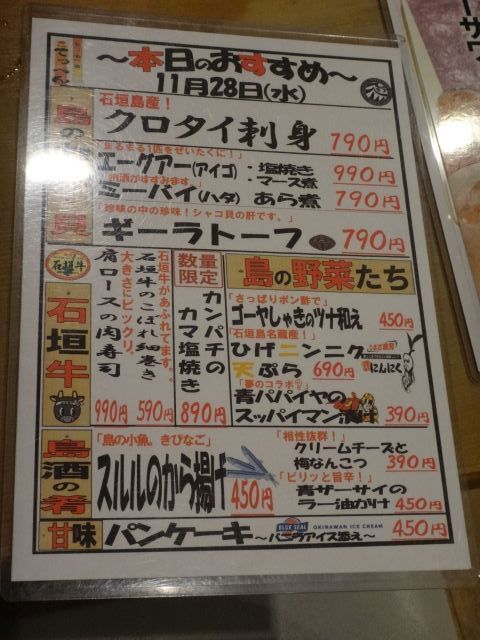 ～本日のおすすめ～
11月28日(水)
石垣島産！
クロタイ刺身 790円
「まるまる1匹をぜいたくに！」
エーグアー(アイゴ)：塩焼き マース煮 990円
ミーバイ(ハタ) あら煮 790円
「珍味の中の珍味！シャコ貝の肝です。」
ギーラトーフ 790円
石垣牛
石垣牛があふれてます。
石垣牛のこぼれ細巻き
590円
大きさにビックリ。
肩ロースの肉寿司
990円
数量限定
カンパチのカマ塩焼き
890円
島の野菜たち
「さっぱりポン酢で」
ゴーヤしゃきのツナ和え 450円
「石垣島名蔵産！」
ひげニンニク
天ぷら 690円
にんにく
「夢のコラボ」
青パパイヤの
スッパイマン漬 390円
島酒の肴
「島の小魚。きびなご」
スルルのから揚げ 450円
「相性抜群！」
クリームチーズと
梅なんこつ 390円
「ピリッと旨辛！」
青ザーサイの
ラー油がけ 450円
甘味
パンケーキ
BLUE SEAL OKINAWAN ICE CREAM
～バニラアイス添え～ 450円